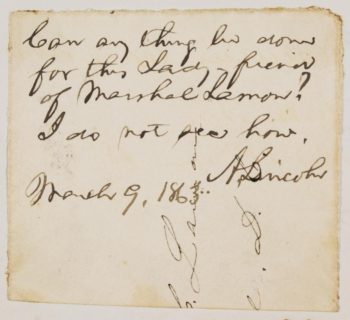 Can any thing be done
for this Lady-friend
of Marshal Lamon?
I do not see how.
A. Lincoln
March 9, 1863.